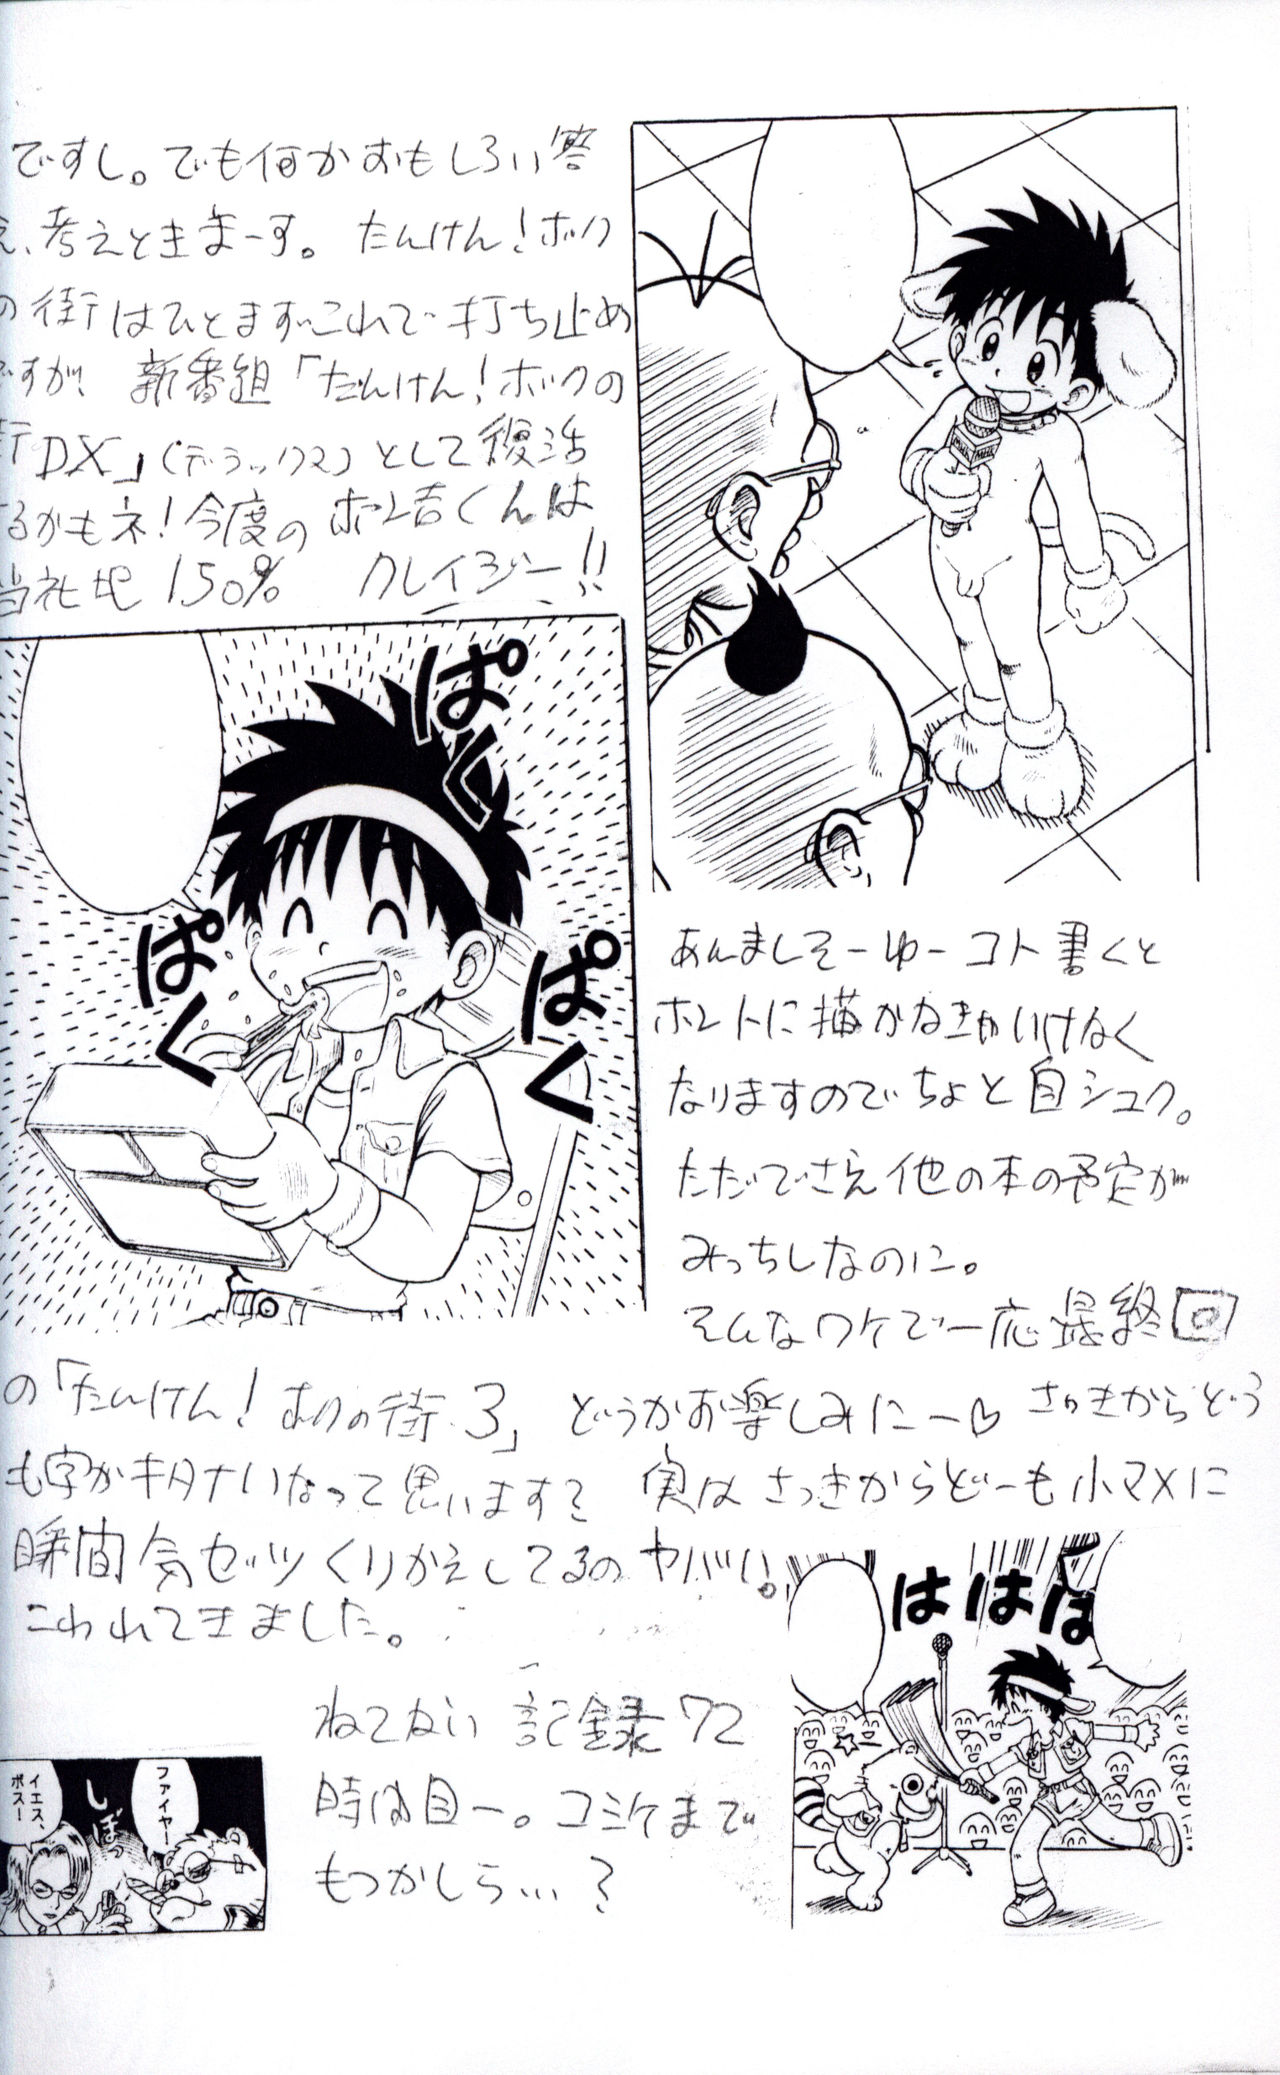 ですし。でも何かおもしろい答
え、考えときまーす。たんけん!ボク
の街はひとまずこれで打ち止め
ですが、新番組「たんけん!ボクの
街DX」(デラックス)として復活
するかもネ!今度のホン吉くんは
当社比150% クレイジー!!
ぱく
ぱく
ぱく
あんましそーゆーコト書くと
ホントに描かなきゃいけなく
なりますのでちょと自シュク。
ただでさえ他の本の予定が
みっちしなのに。
そんなワケで一応最終回
の「たんけん!ボクの街3」どうかお楽しみにー♡ さっきからどう
も字がキタナいなって思いますて 実はさっきからどーも小マメに
瞬間気ゼツくりかえしてるのヤバい。
こわれてきました。
はははは
ねてない記録72
時間目ー。コミケまで
もつかしら…?
ファイヤー
しぼっ
イエス、
ボスー